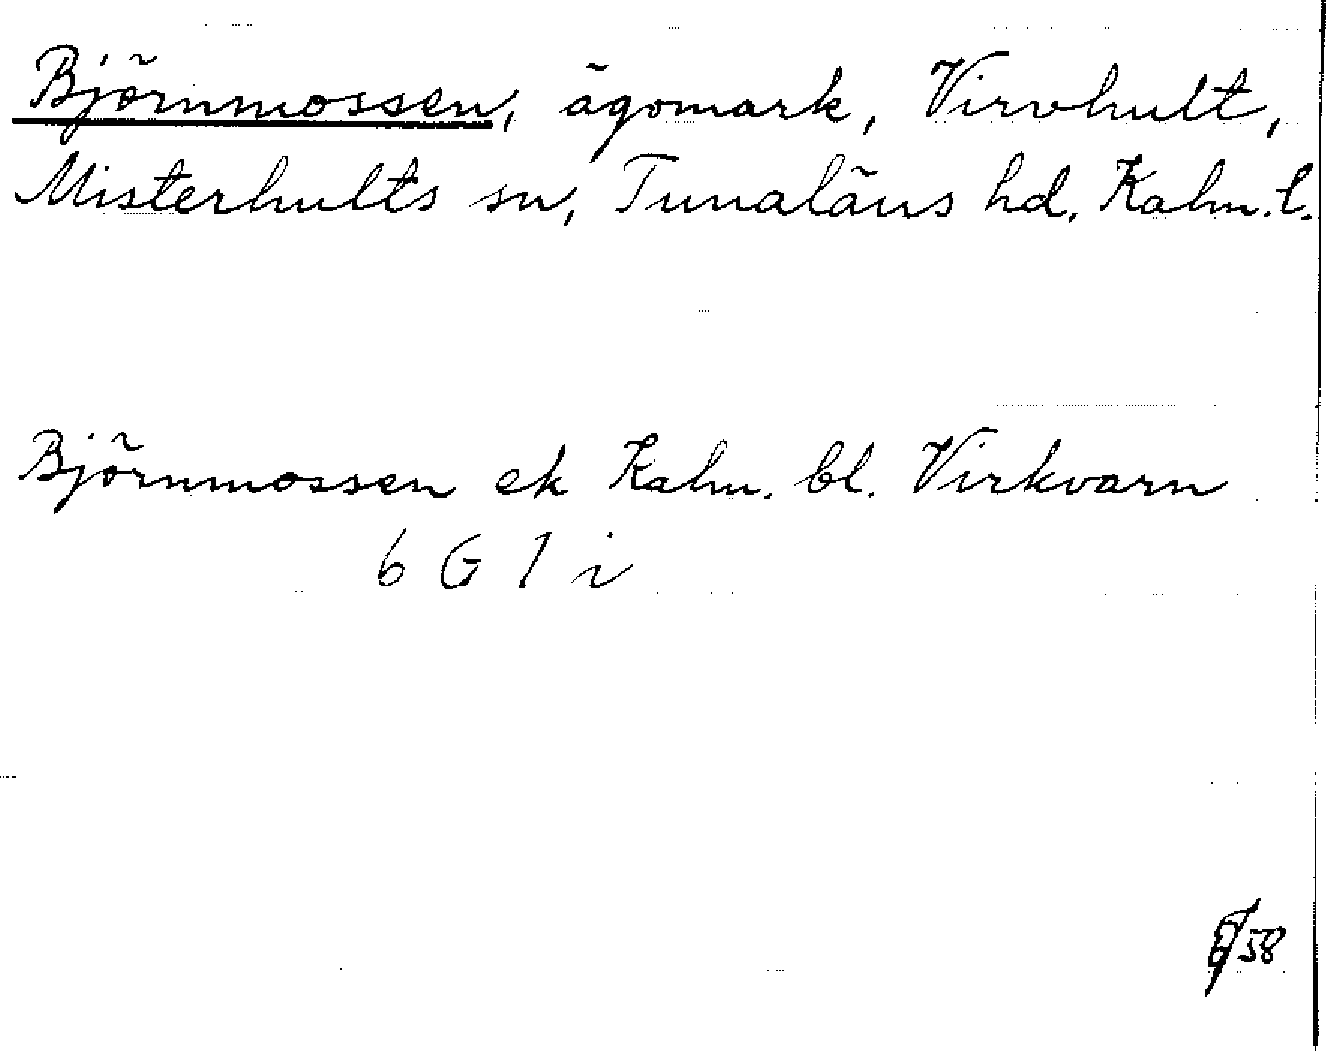 Björnmossen, ägomark, Virvhult,
Misterhults sn, Tunaläns hd, Kalm. l.
Björnmossen ek Kalm. bl. Virkvarn
6 G 1 i
58